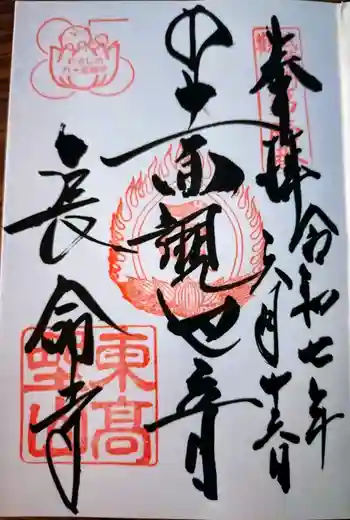 奉拝
令和七年
六月十六日
十一面觀世音
長命寺
東高
野山